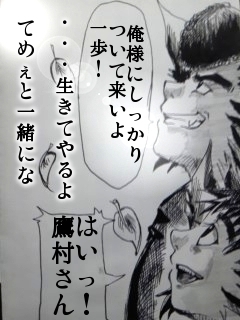 俺様にしっかり
ついて来いよ
一歩！
・・・生きてやるよ
てめぇと一緒にな
はいっ！
鷹村さん